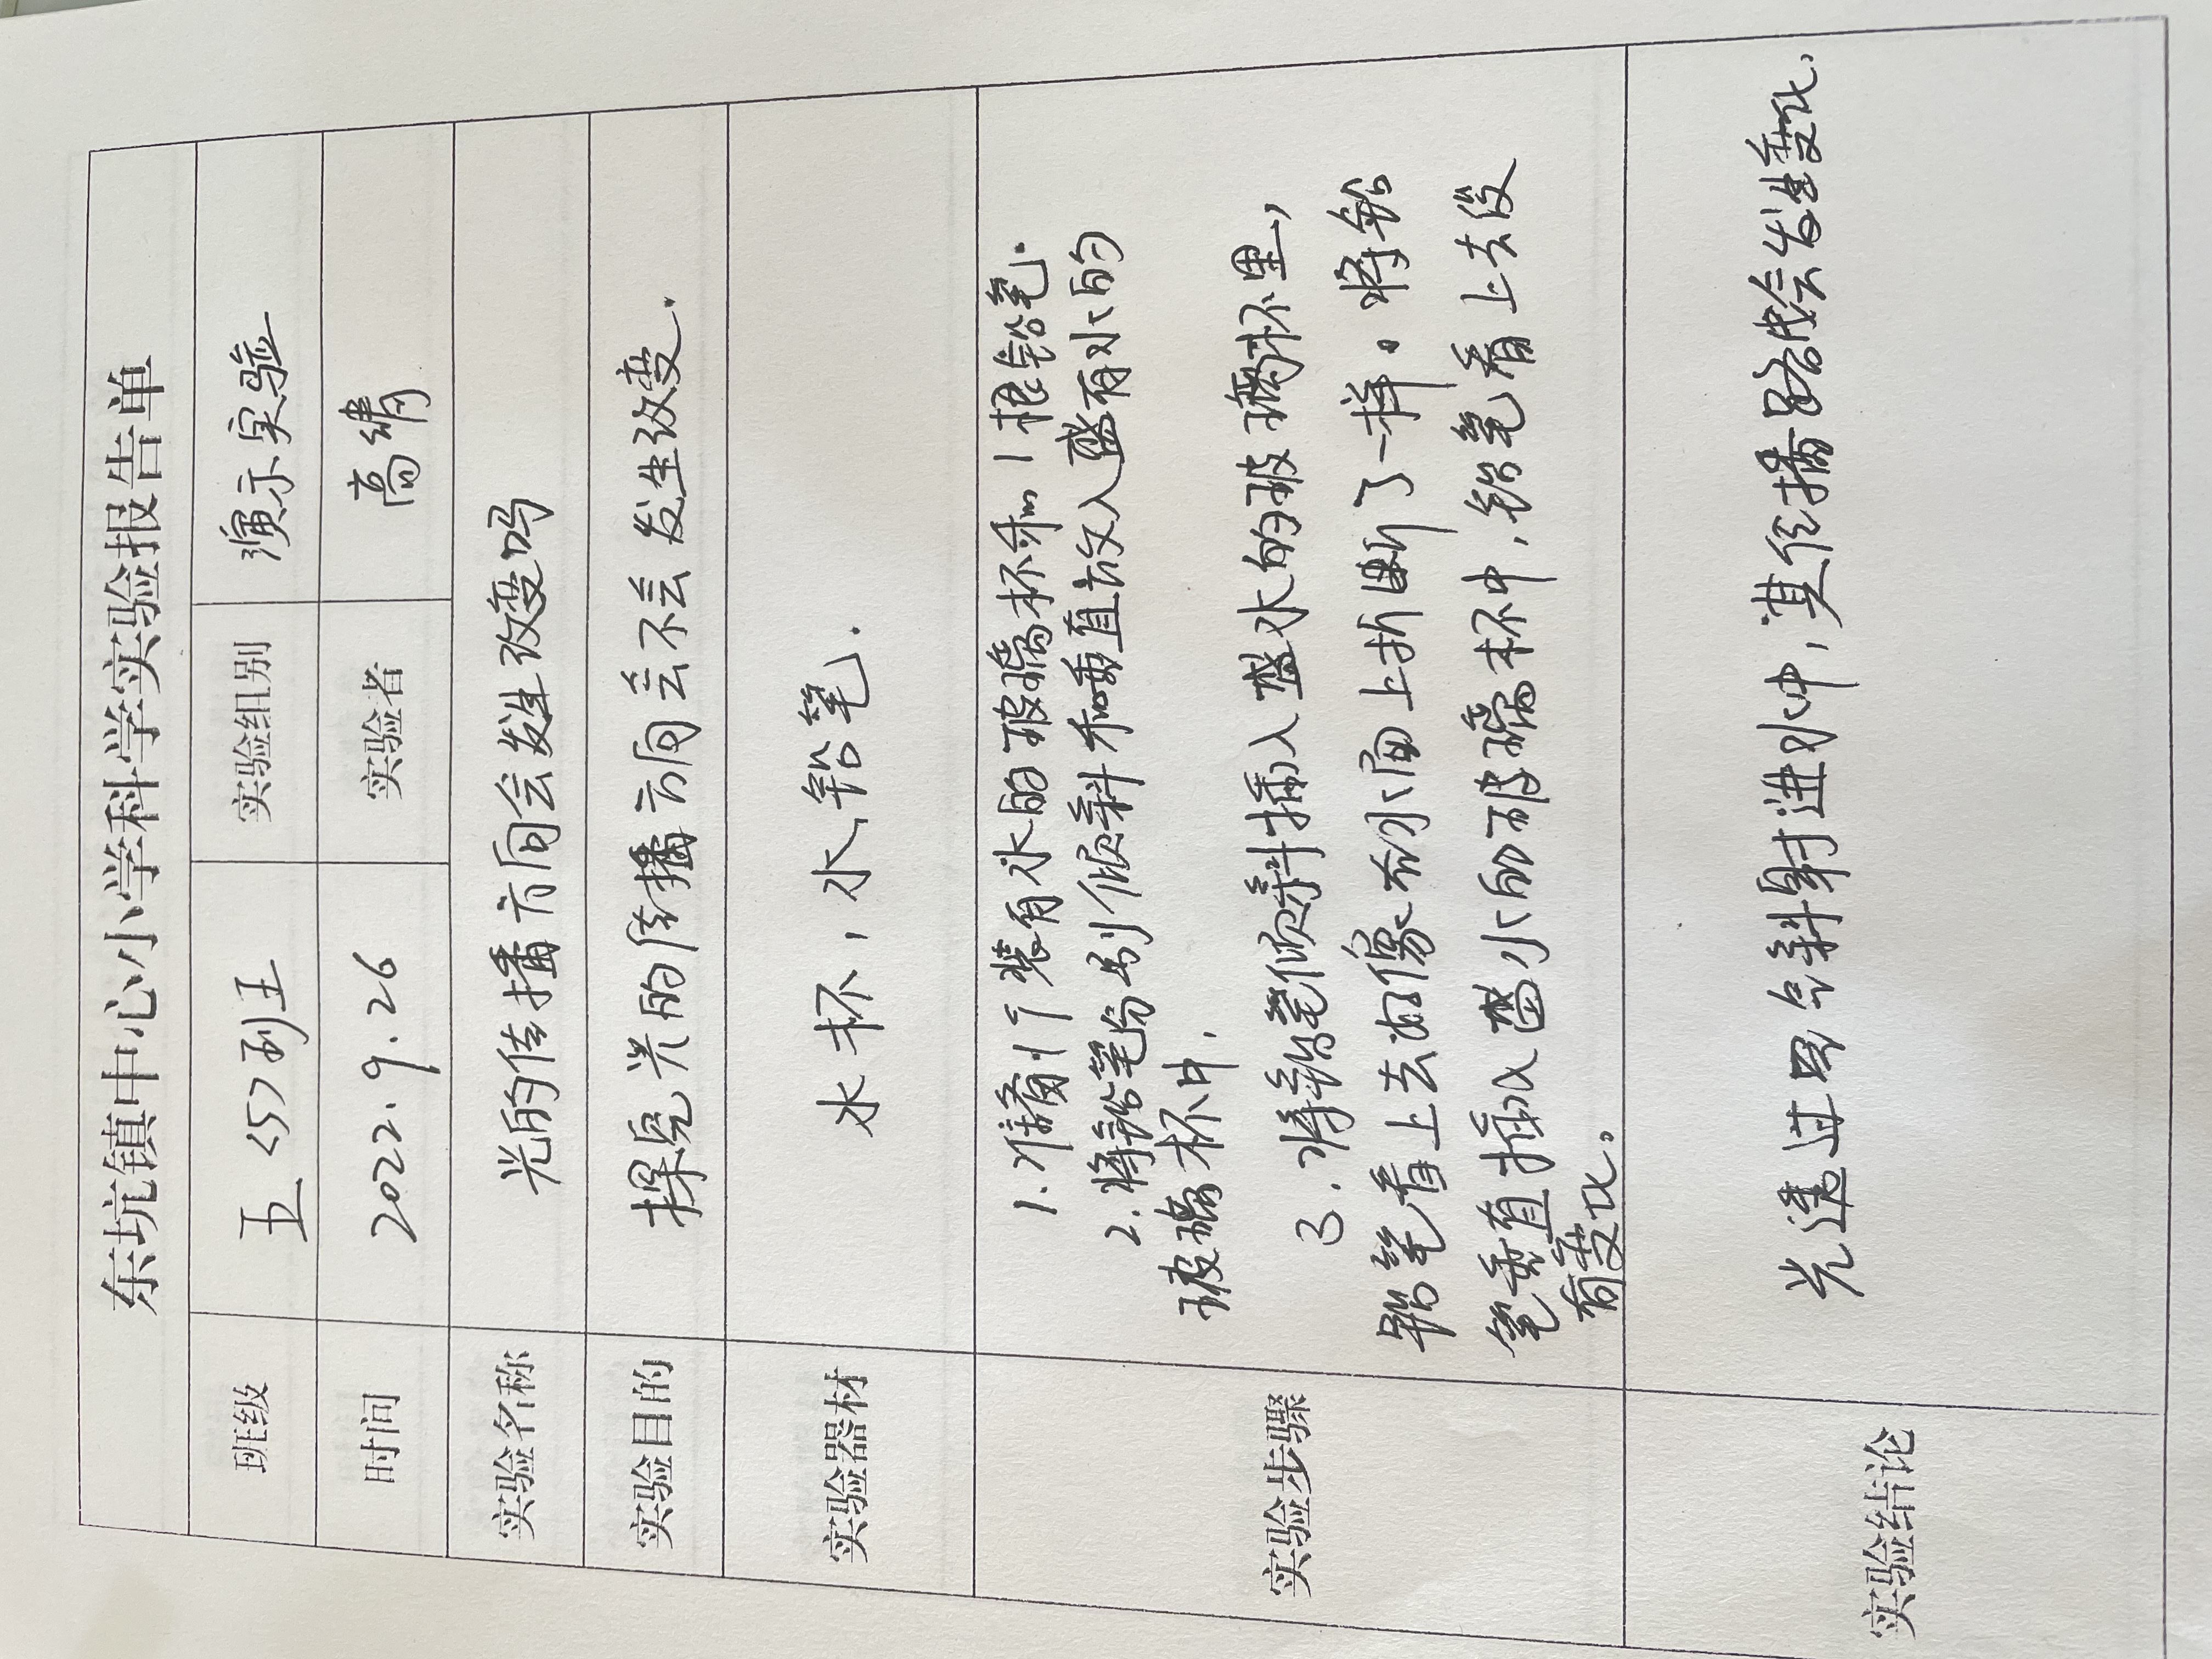 东坑镇中心小学科学实验报告单
班级 五<5>到五 实验组别 演示实验
时间 2022.9.26 实验者 高绣
实验名称 光的传播方向会发生改变吗
实验目的 探究光的传播方向会不会发生改变.
实验器材 水杯,水,铅笔.
实验步骤
1.准备1个装有水的玻璃杯和1根铅笔.
2.将铅笔分别倾斜和垂直放入盛有水的
玻璃杯中.
3.将铅笔倾斜插入盛水的玻璃杯里,
铅笔看上去好像在水面上折断了一样。将铅
笔垂直插入盛水的玻璃杯中,铅笔看上去没
有变化。
实验结论
光透过空气斜射进水中,其传播路线会发生变化.